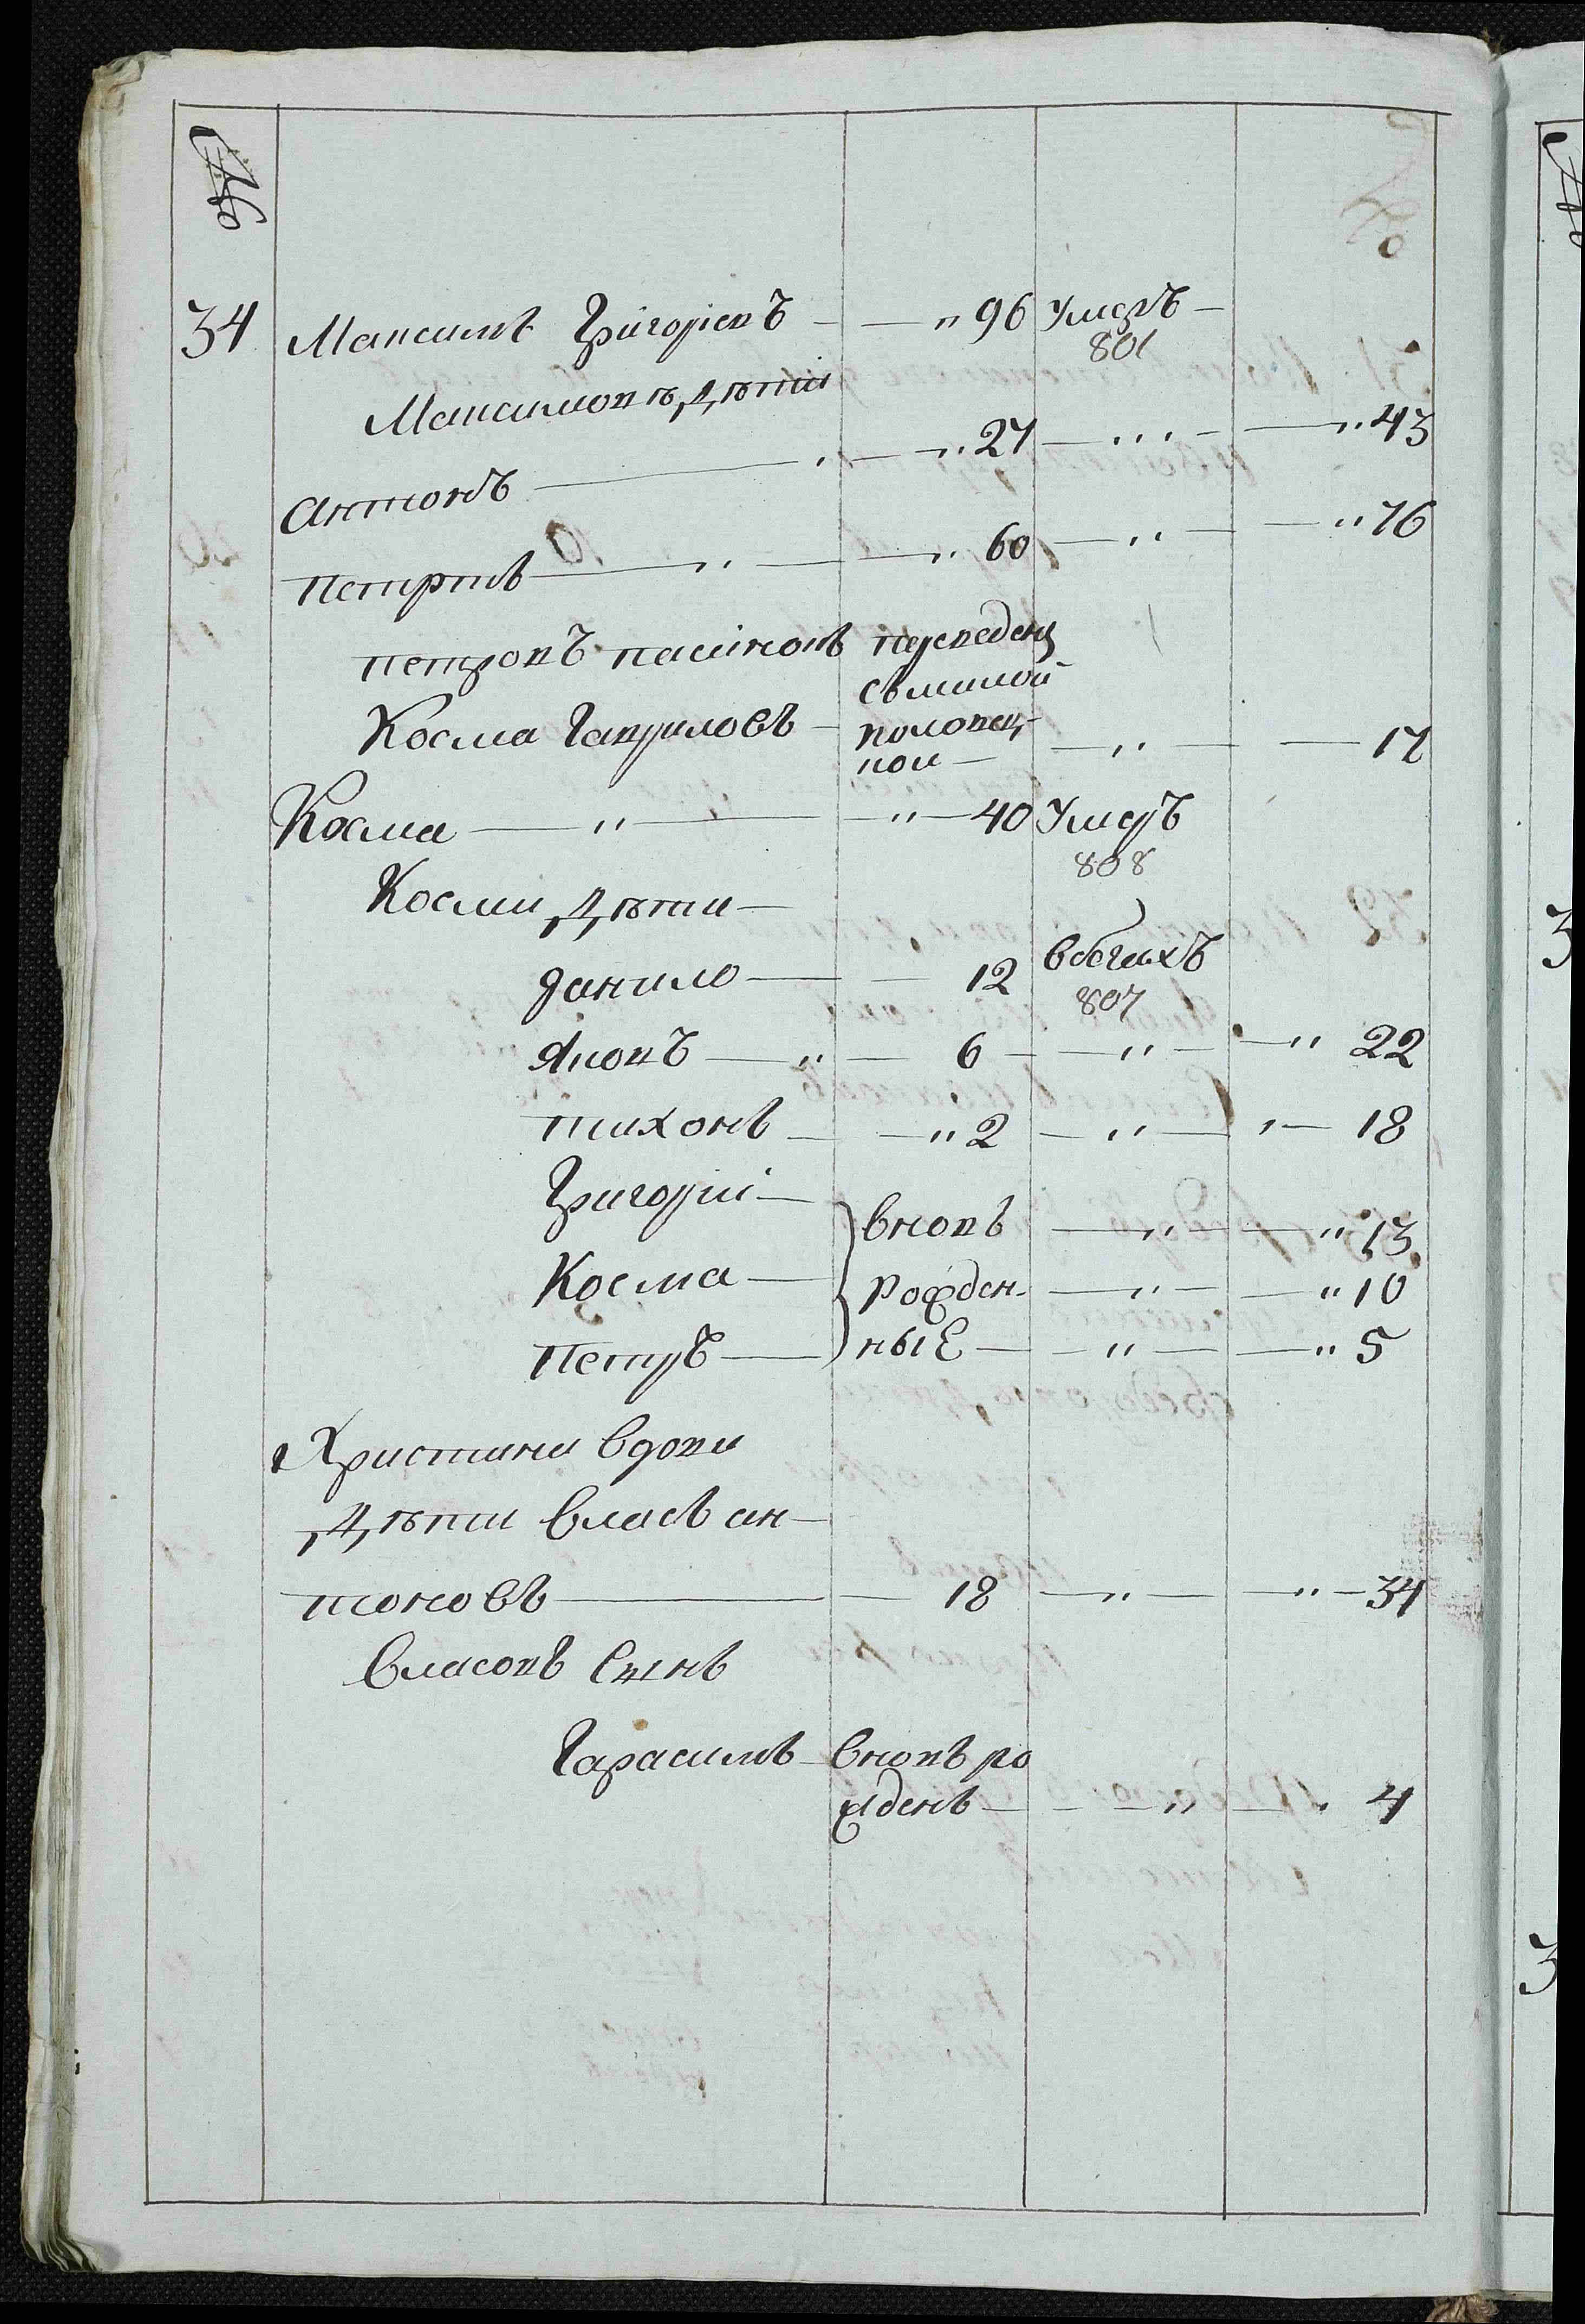 №
34 Максимъ Григорьевъ — — „ 96 Умеръ —
801
Максимовы дѣти
Антонъ — „ — „ 27 — „ — — „ 43
Петръ — „ — — „ 60 — „ — — „ 76
Петровъ пасинокъ переведенъ
Косма Гавриловъ —
— „ — — 17
Косма — „ — — „ — 40 Умеръ
808
Косми дѣти —
Данило — — 12 в бегахъ
807
Яковъ — „ — 6 — — „ — — „ 22
Тихонъ — — „ 2 — „ — „ — 18
Григорий — вновь — „ — — „ 13
Косма — рожден- — „ — — „ 10
Петръ — ные — — „ — — „ 5
Христини вдови
дѣти Власъ Ан-
тоновъ — — 18 — „ — — „ — 34
Власовъ сынъ
Гарасимъ — вновь ро
жденъ — — „ — „ 4